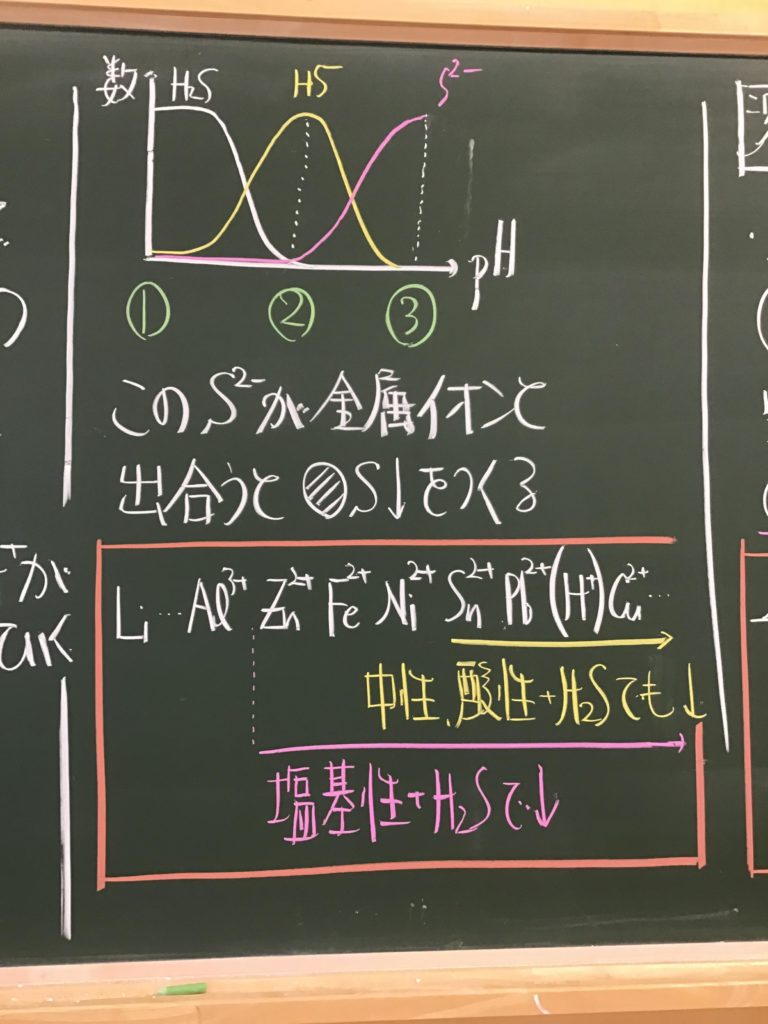 数 H₂S HS⁻ S²⁻
pH
① ② ③
このS²⁻が金属イオンと
出合うと S↓をつくる
Li…Al³⁺ Zn²⁺ Fe²⁺ Ni²⁺ Sn²⁺ Pb²⁺(H⁺)Cu²⁺…
中性、酸性+H₂Sでも↓
塩基性+H₂Sで↓
⁺が
ていく